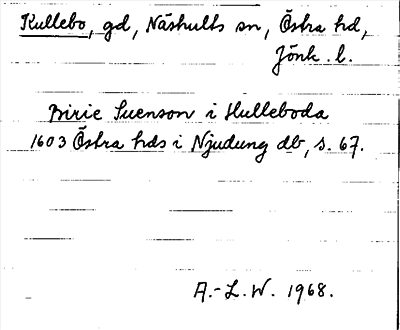 Kullebo, gd, Näshults sn, Östra hd,
Jönk. l.
Birie Suenson i Hulleboda
1603 Östra hds i Njudung db, s. 67.
A.-L.W. 1968.